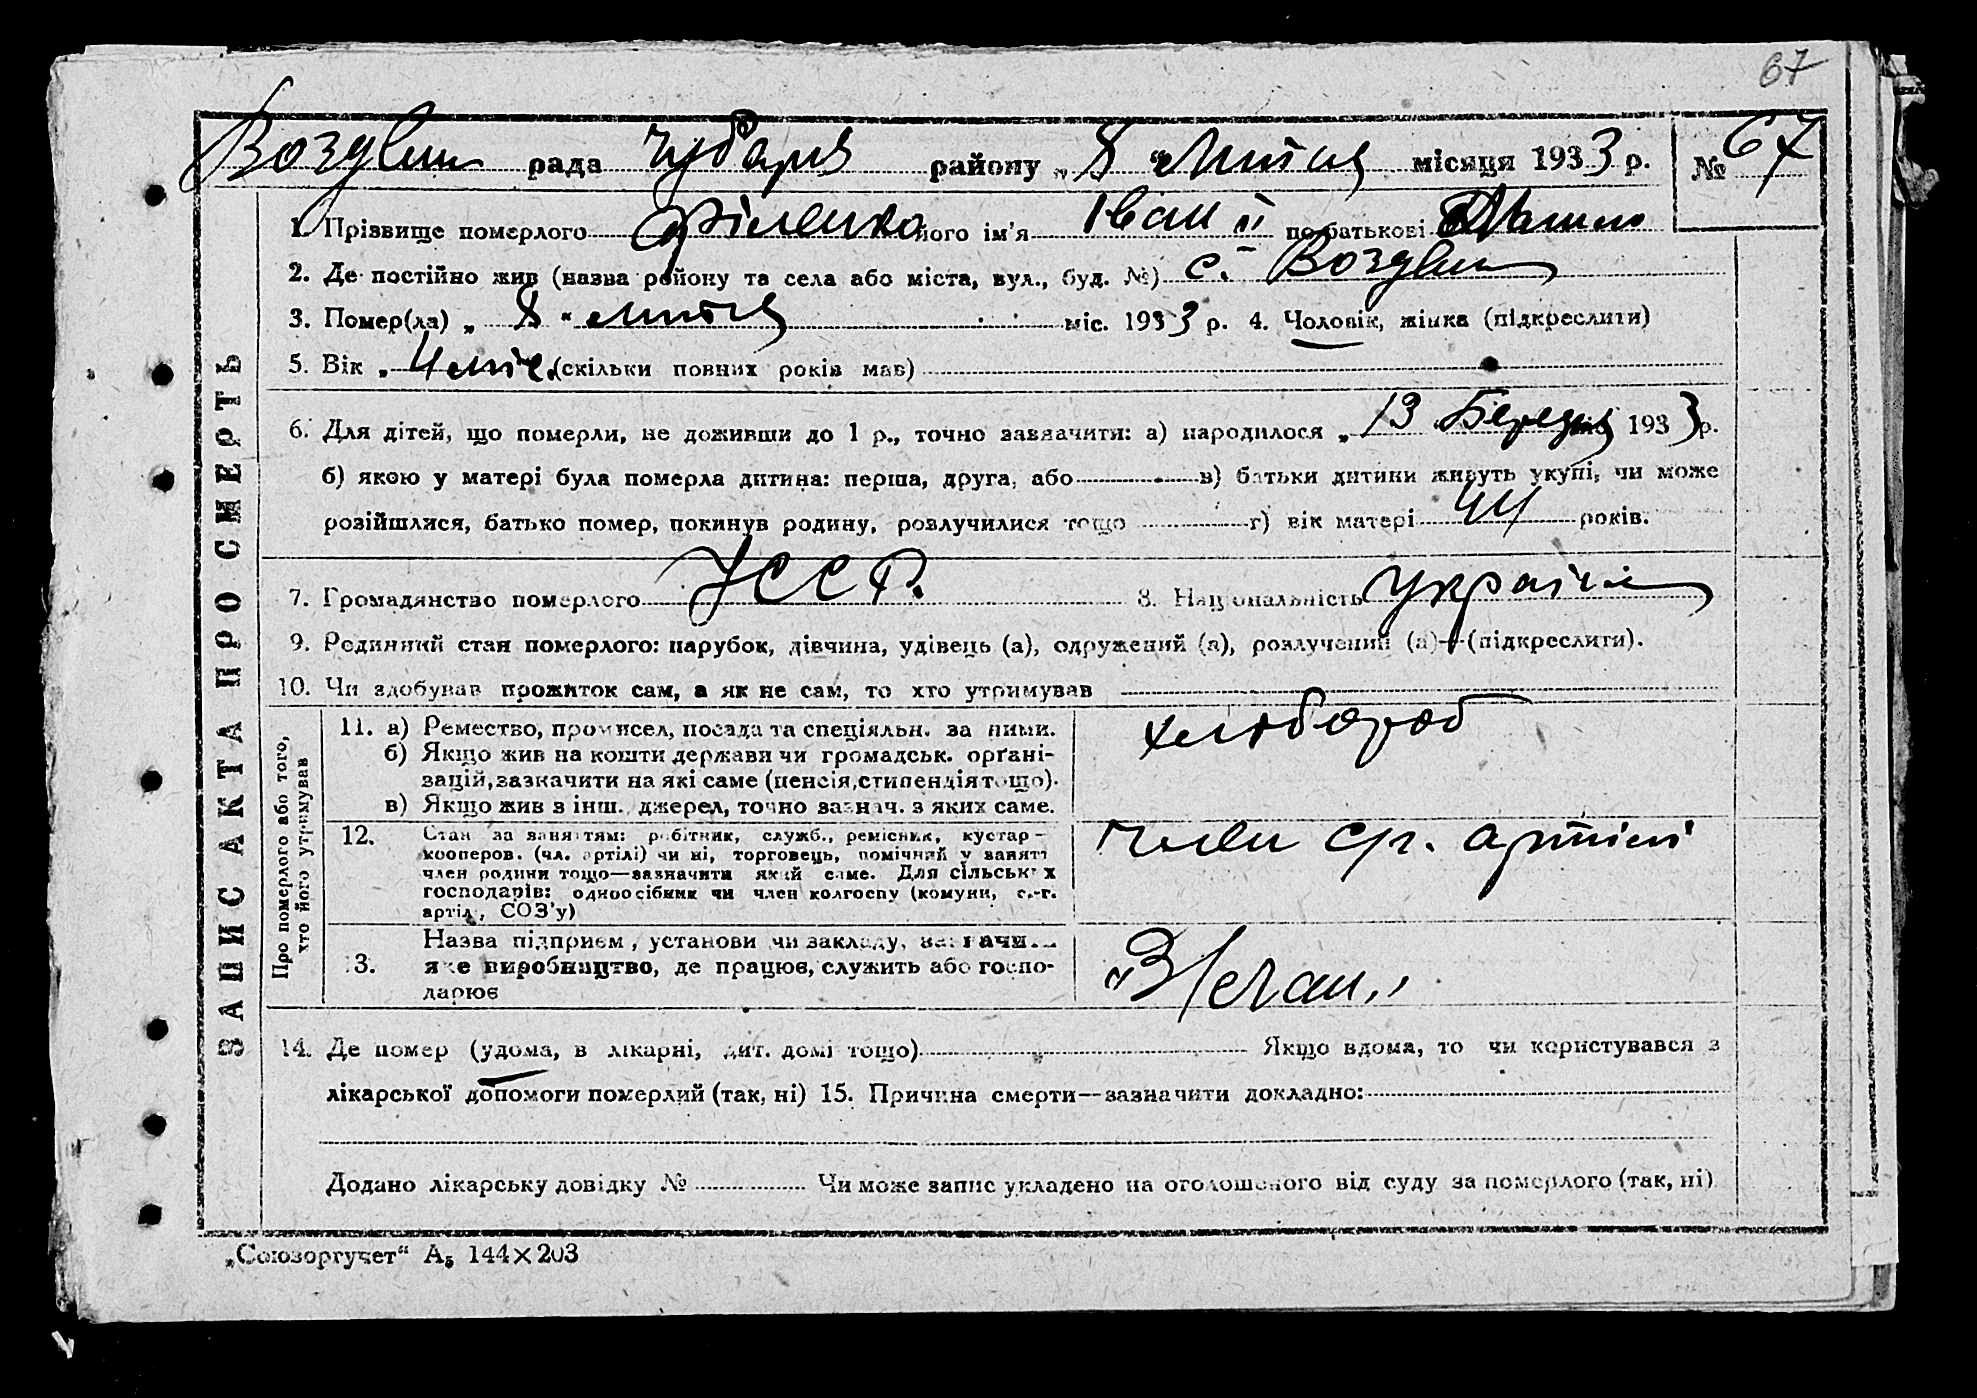 67
Воздвиж рада Чубарів району „8" липня місяця 1933 р. № 67
ЗАПИС АКТА ПРО СМЕРТЬ
1. Прізвище померлого Філенко його ім'я Іван II по батькові
2. Де постійно жив (назва району та села або міста, вул., буд. №) с. Воздвиж
3. Помер(ла) „ 8 " липня міс. 1933 р. 4. Чоловік, жінка (підкреслити)
5. Вік „ 4 міс. (скільки повних років мав)
6. Для дітей, що померли, не доживши до 1 р., точно зазначити: а) народилося „ 13 Березня 1933 р.
б) якою у матері була померла дитина: перша, друга, або в) батьки дитини живуть укупі, чи може
розійшлися, батько помер, покинув родину, розлучилися тощо г) вік матері 44 років.
7. Громадянство померлого УССР. 8. Національність україн
9. Родинний стан померлого: парубок, дівчина, удівець (а), одружений (а), розлучений (а)—(підкреслити).
10. Чи здобував прожиток сам, а як не сам, то хто утримував
Про померлого або того,
хто його утримував
11. а) Ремество, промисел, посада та спеціяльн. за ними. хлібороб
б) Якщо жив на кошти держави чи громадськ. орґані-
зацій, зазначити на які саме (пенсія, стипендія тощо).
в) Якщо жив з інш. джерел, точно зазнач. з яких саме.
12. Стан за заняттям: робітник, служб., ремісник, кустар— член с/г. артілі
кооперов. (чл. артілі) чи ні, торговець, помічний у занятті
член родини тощо—зазначити який саме. Для сільських
господарів: одноосібник чи член колгоспу (комуни, с.-г.
артіл , СОЗ'у)
Назва підприєм , установи чи закладу,
13. яке виробництво, де працює, служить або госпо-
дарює
14. Де помер (удома, в лікарні, дит. домі тощо) Якщо вдома, то чи користувався з
лікарської допомоги померлий (так, ні) 15. Причина смерти—зазначити докладно:
Додано лікарську довідку № Чи може запис укладено на оголошеного від суду за померлого (так, ні)
„Союзоргучет" А5 144×203